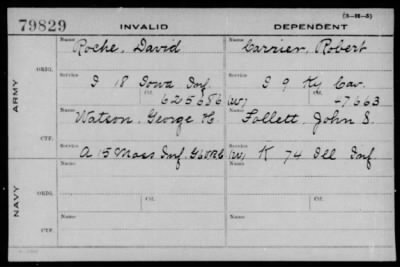 (3-H-5)
79829 INVALID DEPENDENT
Name Roche, David Name Carrier, Robert
ORIG.
Service Service
I 18 Iowa Inf I 9 Ky Cav.
Ctf. 625656 (W) Ctf. 47663
ARMY
Name Watson, George H. Name Follett, John S.
CTF.
Service Service
A 15 Mass Inf. (W) K 74 Ill Inf
Name Ctf. Name Ctf.
NAVY
ORIG.
Service Service
Name Name
CTF.
Service Service